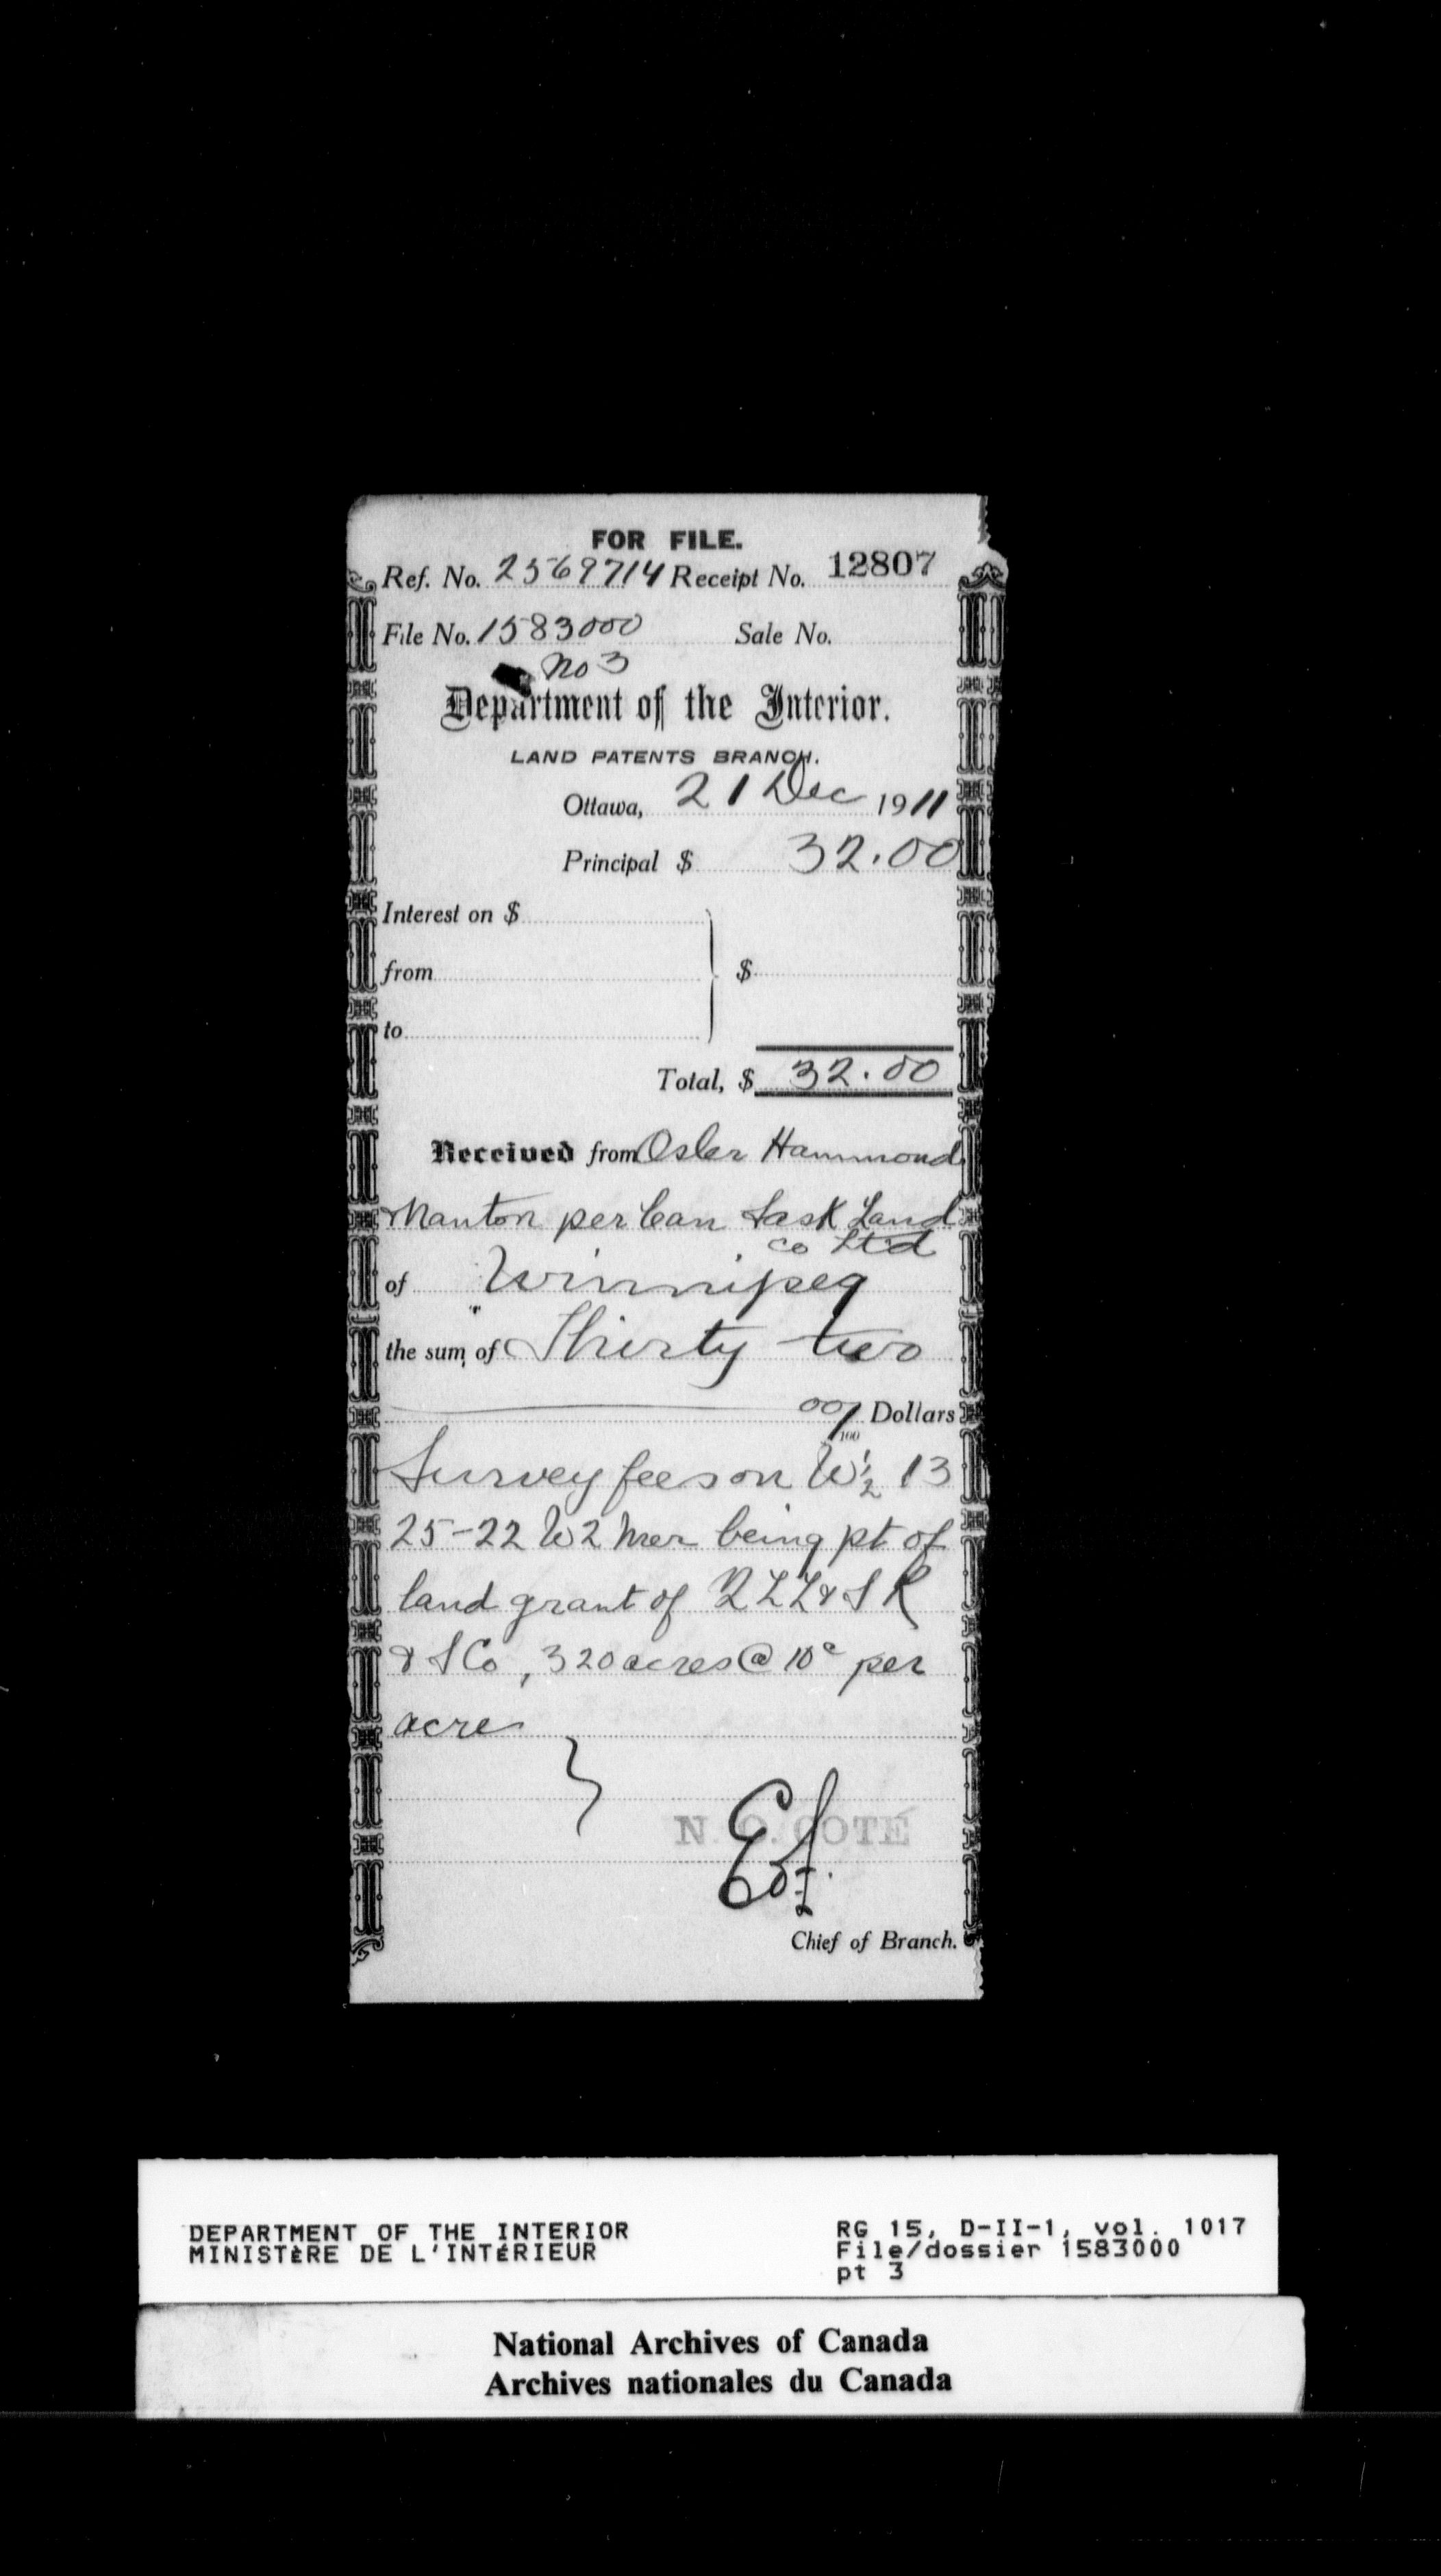 FOR FILE.
Ref. No. 2569714 Receipt No. 12807
File No. 1583000 Sale No.
No 3
Department of the Interior.
LAND PATENTS BRANCH.
Ottawa, 21 Dec 1911
Principal $ 32.00
Interest on $
from $
to
Total, $ 32.00
Received from Osler Hammond
& Nanton per Can Sask Land
Co Ltd
of Winnipeg
the sum of Thirty two
00/100 Dollars
Survey fees on W½ 13
25-22 W2 Mer being pt of
land grant of QLL & S R
& S Co, 320 acres @ 10c per
acre
N. O. COTÉ
Chief of Branch.
DEPARTMENT OF THE INTERIOR
MINISTÈRE DE L'INTÉRIEUR
RG 15, D-II-1, vol. 1017
File/dossier 1583000
pt 3
National Archives of Canada
Archives nationales du Canada